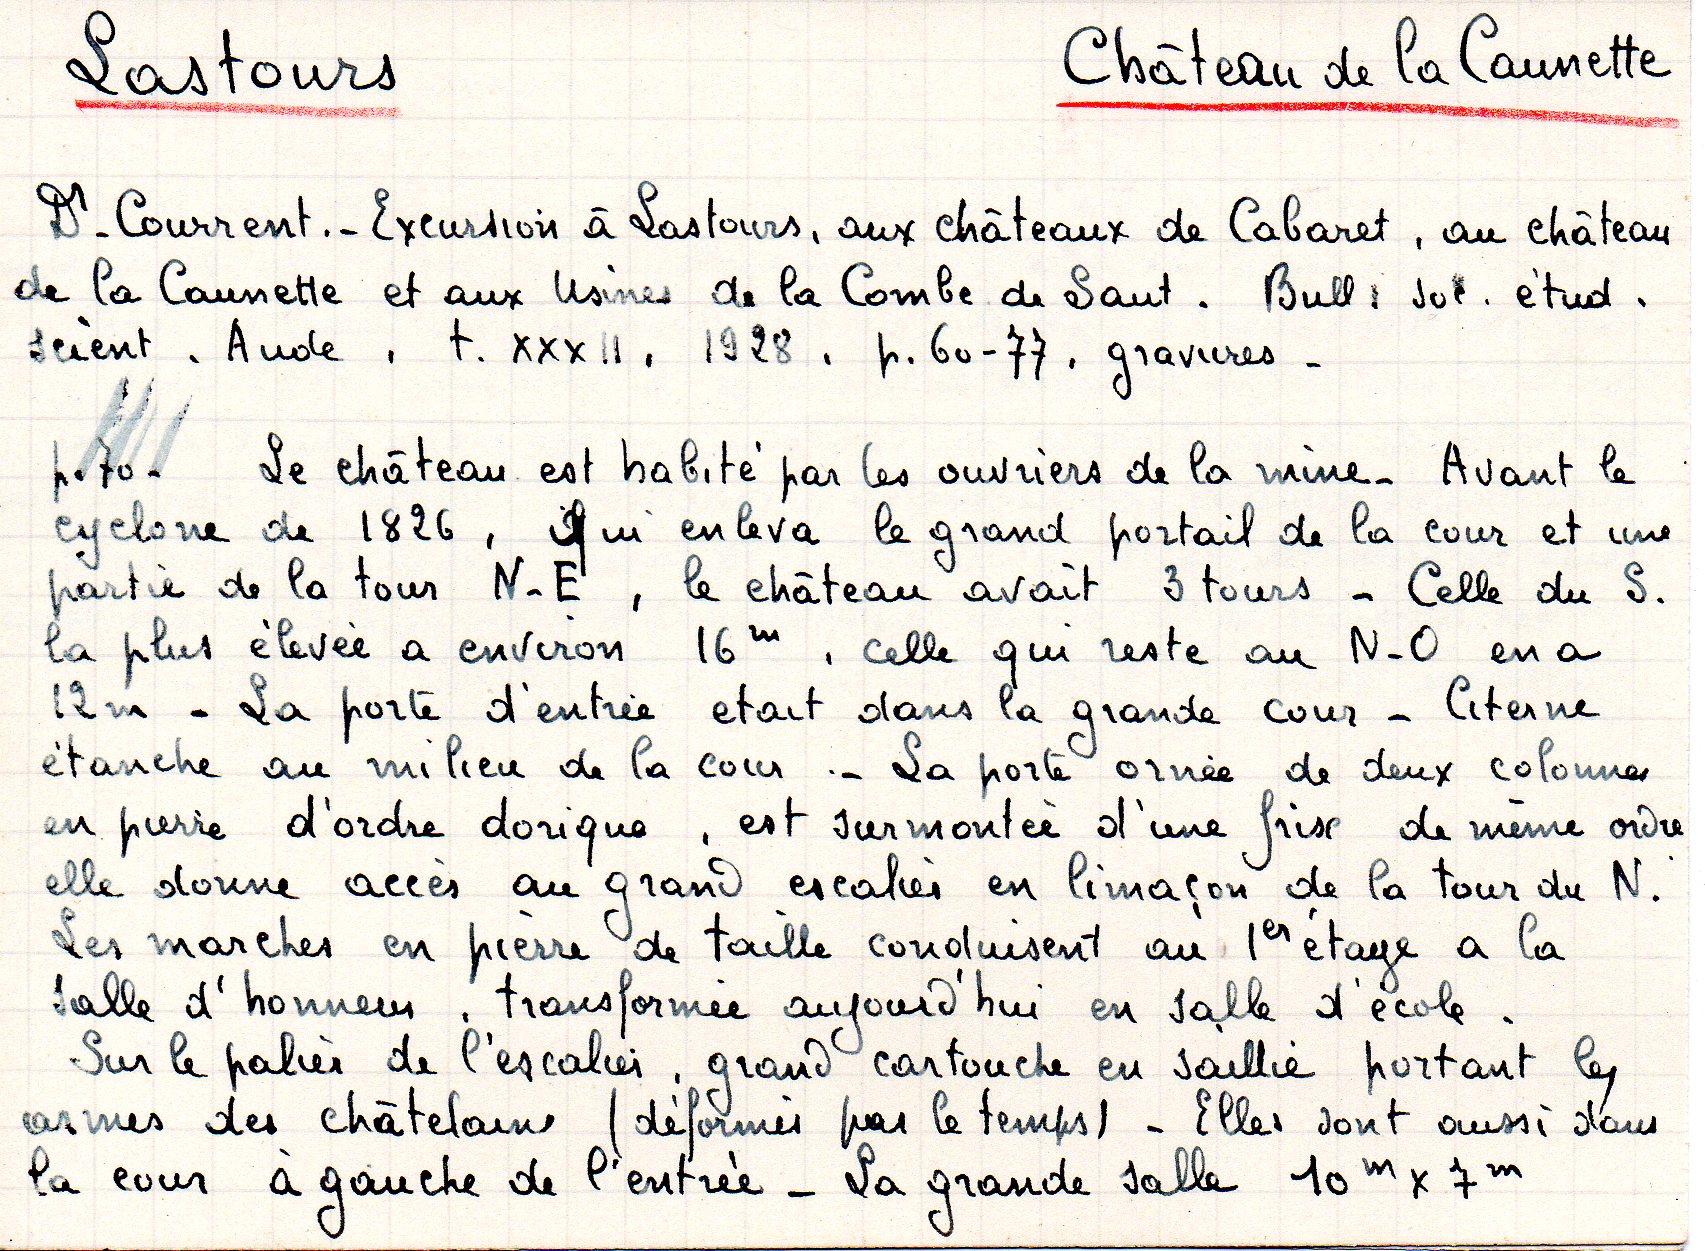 Lastours Château de la Caunette
Dr - Courrent. - Excursion à Lastours, aux châteaux de Cabaret, au château
de la Caunette et aux Usines de la Combe de Saut. Bull. soc. étud.
scient. Aude, t. XXXII, 1928, p. 60-77, gravures -
p. 70 - Le château est habité par les ouvriers de la mine - Avant le
cyclone de 1826, qui enleva le grand portail de la cour et une
partie de la tour N-E, le château avait 3 tours - Celle du S.
la plus élevée a environ 16m, celle qui reste au N-O en a
12m - La porte d'entrée etait dans la grande cour - Citerne
étanche au milieu de la cour. - La porte ornée de deux colonnes
en pierre d'ordre dorique, est surmontée d'une frise de même ordre
elle donne accès au grand escalier en limaçon de la tour du N.
Les marches en pierre de taille conduisent au 1er étage a la
salle d'honneur, transformée aujourd'hui en salle d'école.
Sur le palier de l'escalier, grand cartouche en saillie portant les
armes des châtelains (déformés par le temps) - Elles sont aussi dans
la cour à gauche de l'entrée - La grande salle 10m x 7m